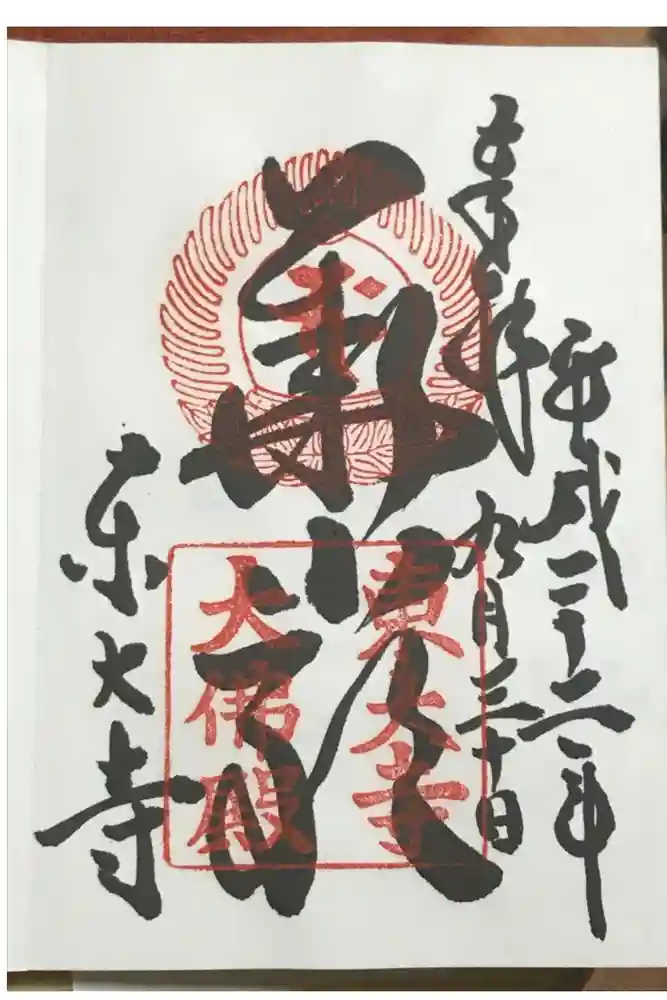 平成二十二年
奉拝
九月三十日
華厳
東大寺
東大寺
大佛殿